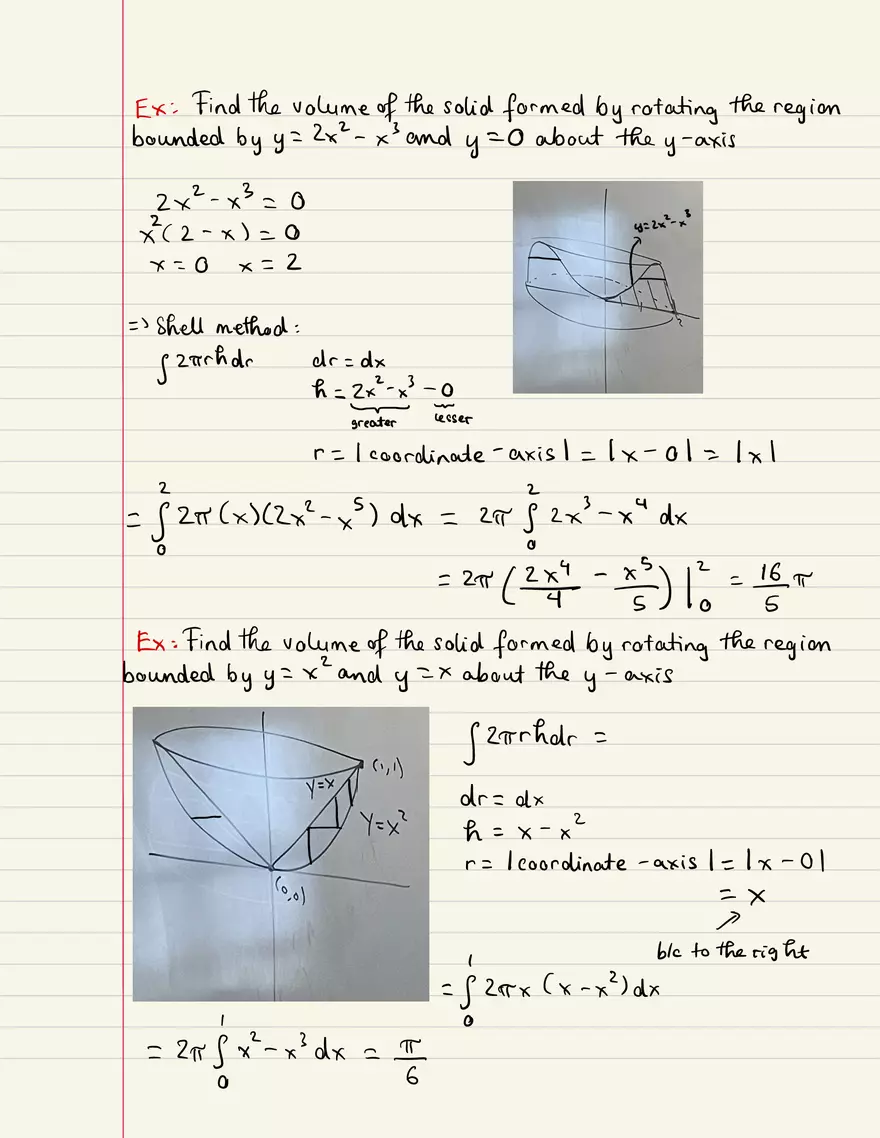 Ex: Find the volume of the solid formed by rotating the region
bounded by y = 2x² - x³ and y = 0 about the y-axis
2x² - x³ = 0
x²(2 - x) = 0
x = 0 x = 2
y=2x²-x³
2
=> Shell method:
∫ 2πrh dr dr = dx
h = 2x² - x³ - 0
greater lesser
r = |coordinate - axis| = |x - 0| = |x|
= ∫₀² 2π(x)(2x² - x⁵) dx = 2π ∫₀² 2x³ - x⁴ dx
= 2π (2x⁴/4 - x⁵/5) |₀² = 16/5 π
Ex: Find the volume of the solid formed by rotating the region
bounded by y = x² and y = x about the y-axis
(1,1)
y=x
y=x²
(0,0)
∫ 2πrh dr =
dr = dx
h = x - x²
r = |coordinate - axis| = |x - 0|
= x
b/c to the right
= ∫₀¹ 2πx (x - x²) dx
= 2π ∫₀¹ x² - x³ dx = π/6